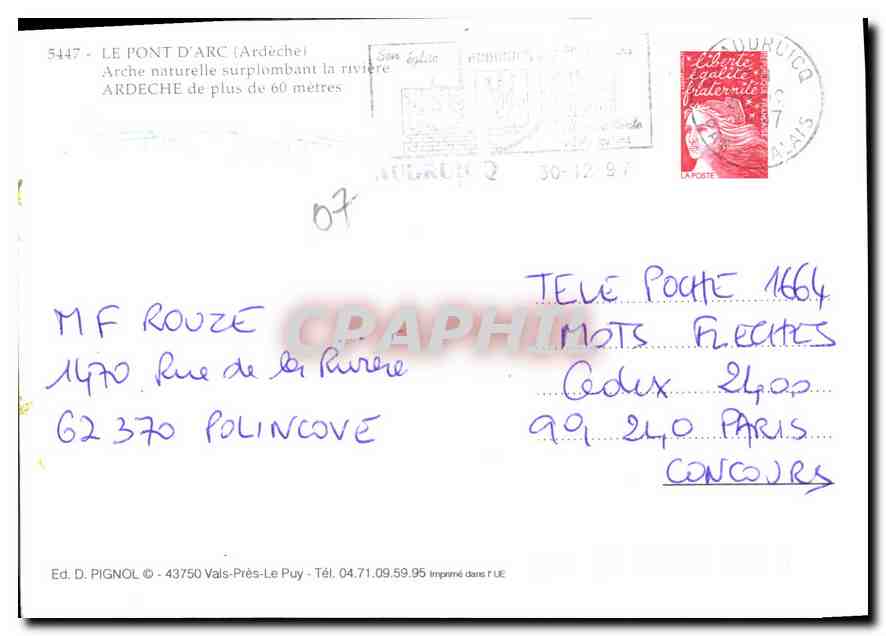 5447 - LE PONT D'ARC (Ardèche)
Arche naturelle surplombant la rivière
ARDECHE de plus de 60 mètres
Son église
30-12 97
liberté
égalité
fraternité
RÉPUBLIQUE FRANÇAISE
LA POSTE
AUDRUICQ
CALAIS
07
TELE POCHE 1664
MOTS FLECHES
Cedex 2400
99, 240 PARIS
CONCOURS
M F ROUZE
1470 Rue de la Rivière
62 370 POLINCOVE
CPAPHIL
Ed. D. PIGNOL © - 43750 Vals-Près-Le Puy - Tél. 04.71.09.59.95 Imprimé dans l'UE